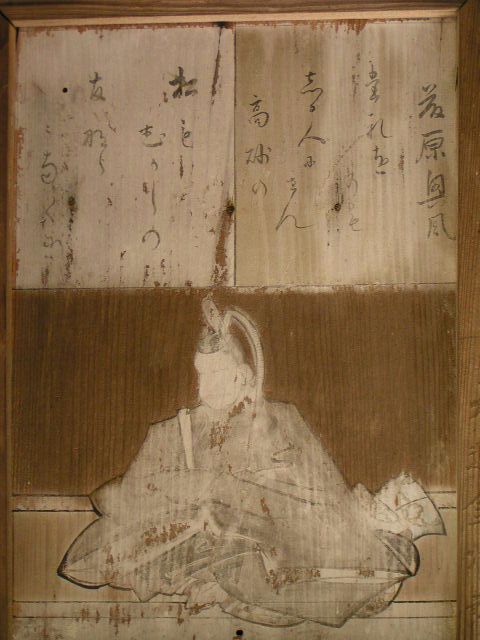 藤原興風
たれを
かも
しる人に
せん
高砂の
松も
むかしの
友なら
なくに